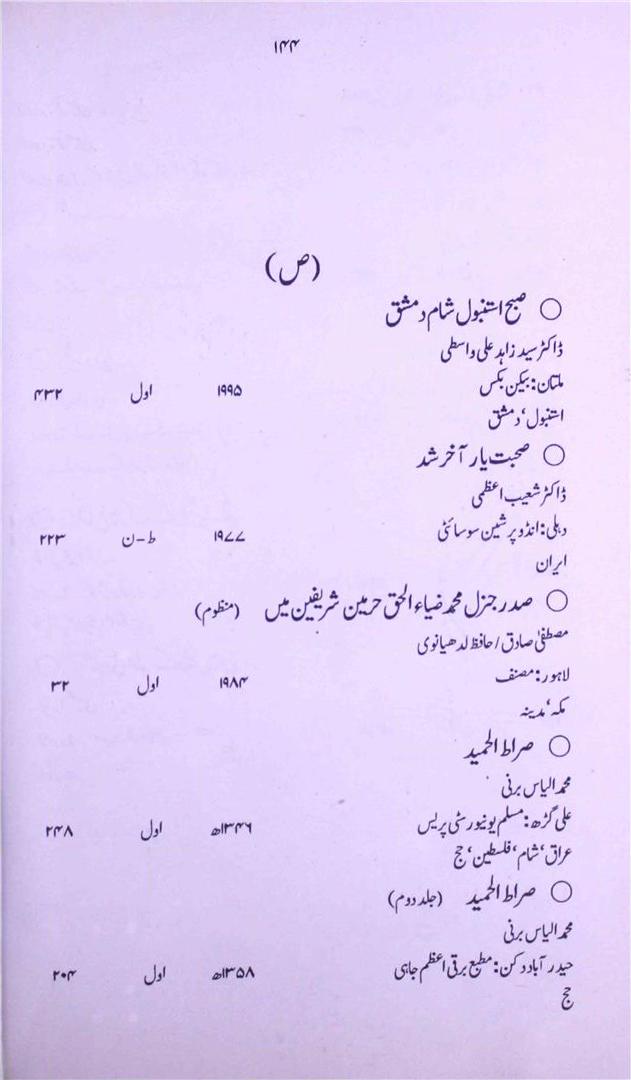 ۱۴۴
(ص)
○ صبح استنبول شام دمشق
ڈاکٹر سید زاہد علی واسطی
ملتان: بیکن بکس ۱۹۹۵ اول ۴۳۲
استنبول، دمشق
○ صحبت یار آخر شد
ڈاکٹر شعیب اعظمی
دہلی: انڈو پرشین سوسائٹی ۱۹۷۷ ط-ن ۲۲۳
ایران
○ صدر جنرل محمد ضیاء الحق حرمین شریفین میں (منظوم)
مصطفیٰ صادق / حافظ لدھیانوی
لاہور: مصنف ۱۹۸۴ اول ۳۲
مکہ، مدینہ
○ صراط الحمید
محمد الیاس برنی
علی گڑھ: مسلم یونیورسٹی پریس ۱۳۴۶ھ اول ۲۴۸
عراق، شام، فلسطین، حج
○ صراط الحمید (جلد دوم)
محمد الیاس برنی
حیدر آباد دکن: مطبع برقی اعظم جاہی ۱۳۵۸ھ اول ۲۰۴
حج